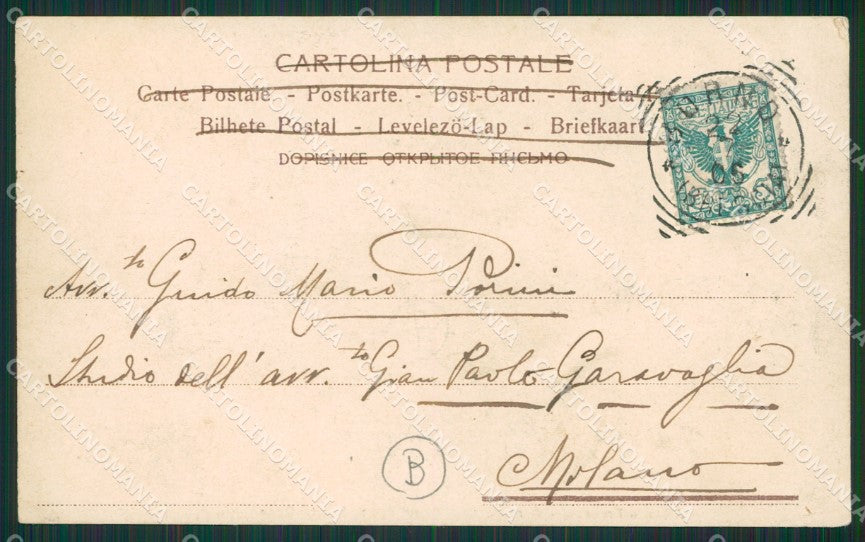 CARTOLINA POSTALE
Carte Postale - Postkarte. - Post-Card. - Tarjeta
Bilhete Postal - Levelezö-Lap - Briefkaart
DOPISNICE ОТКРЫТОЕ ПИСЬМО
22
05
Avv.to Guido Mario Porini
Studio dell' avv.to Gian Paolo Garavaglia
Milano
B
CARTOLINOMANIA